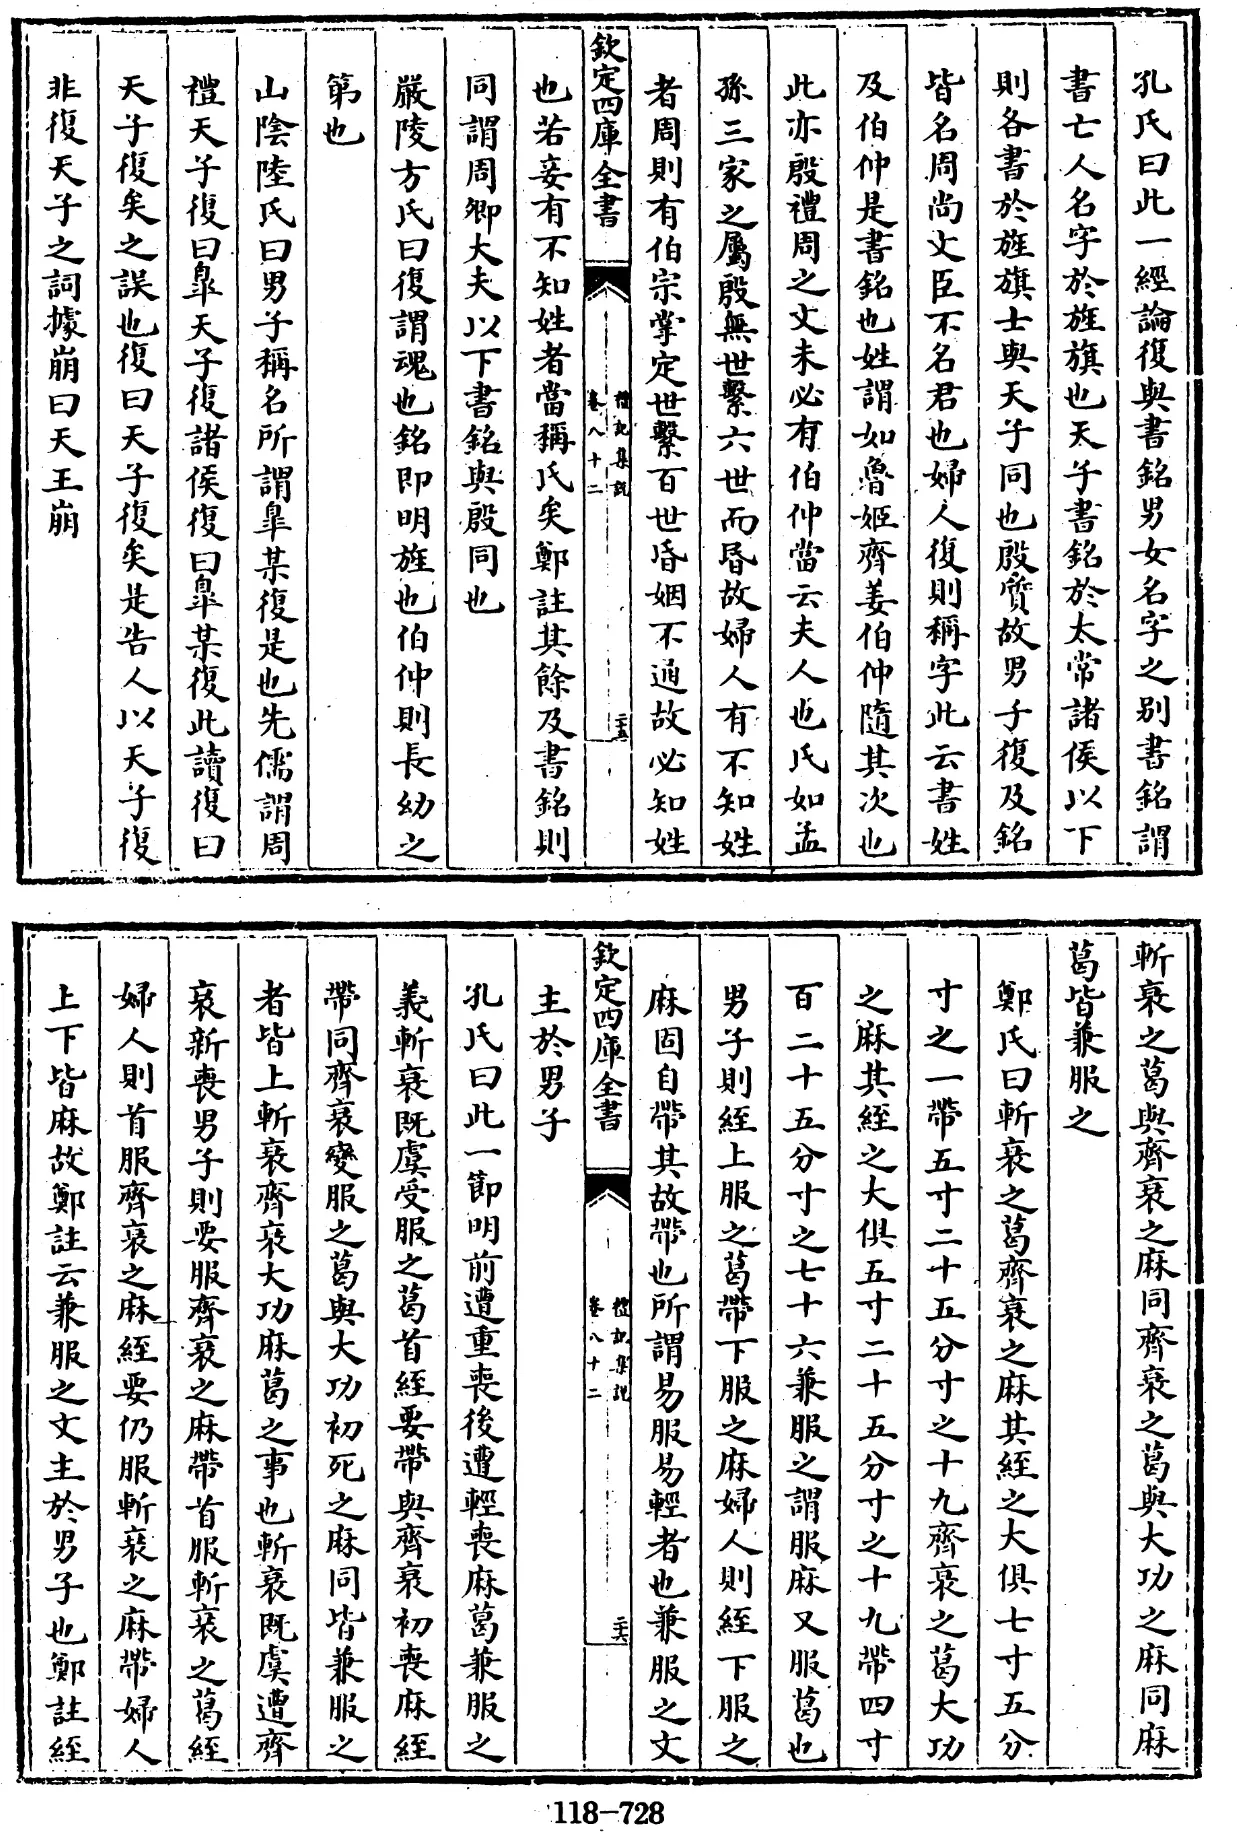 孔氏曰此一經論復與書銘男女名字之别書銘謂
書亡人名字於旌旗也天子書銘於太常諸侯以下
則各書於旌旗士與天子同也殷質故男子復及銘
皆名周尚文臣不名君也婦人復則稱字此云書姓
及伯仲是書銘也姓謂如魯姬齊姜伯仲隨其次也
此亦殷禮周之文未必有伯仲當云夫人也氏如孟
孫三家之屬殷無世繫六世而昏故婦人有不知姓
者周則有伯宗掌定世繫百世昏姻不通故必知姓
欽定四庫全書
禮記集說
卷八十二
二十五
也若妾有不知姓者當稱氏矣鄭註其餘及書銘則
同謂周卿大夫以下書銘與殷同也
嚴陵方氏曰復謂魂也銘即明旌也伯仲則長幼之
第也
山陰陸氏曰男子稱名所謂臯某復是也先儒謂周
禮天子復曰臯天子復諸侯復曰臯某復此讀復曰
天子復矣之誤也復曰天子復矣是告人以天子復
非復天子之詞據崩曰天王崩
斬衰之葛與齊衰之麻同齊衰之葛與大功之麻同麻
葛皆兼服之
鄭氏曰斬衰之葛齊衰之麻其絰之大俱七寸五分
寸之一帶五寸二十五分寸之十九齊衰之葛大功
之麻其絰之大俱五寸二十五分寸之十九帶四寸
百二十五分寸之七十六兼服之謂服麻又服葛也
男子則絰上服之葛帶下服之麻婦人則絰下服之
麻固自帶其故帶也所謂易服易輕者也兼服之文
欽定四庫全書
禮記集說
卷八十二
二十六
主於男子
孔氏曰此一節明前遭重喪後遭輕喪麻葛兼服之
義斬衰既虞受服之葛首絰要帶與齊衰初喪麻絰
帶同齊衰變服之葛與大功初死之麻同皆兼服之
者皆上斬衰齊衰大功麻葛之事也斬衰既虞遭齊
衰新喪男子則要服齊衰之麻帶首服斬衰之葛絰
婦人則首服齊衰之麻絰要仍服斬衰之麻帶婦人
上下皆麻故鄭註云兼服之文主於男子也鄭註絰
118-728